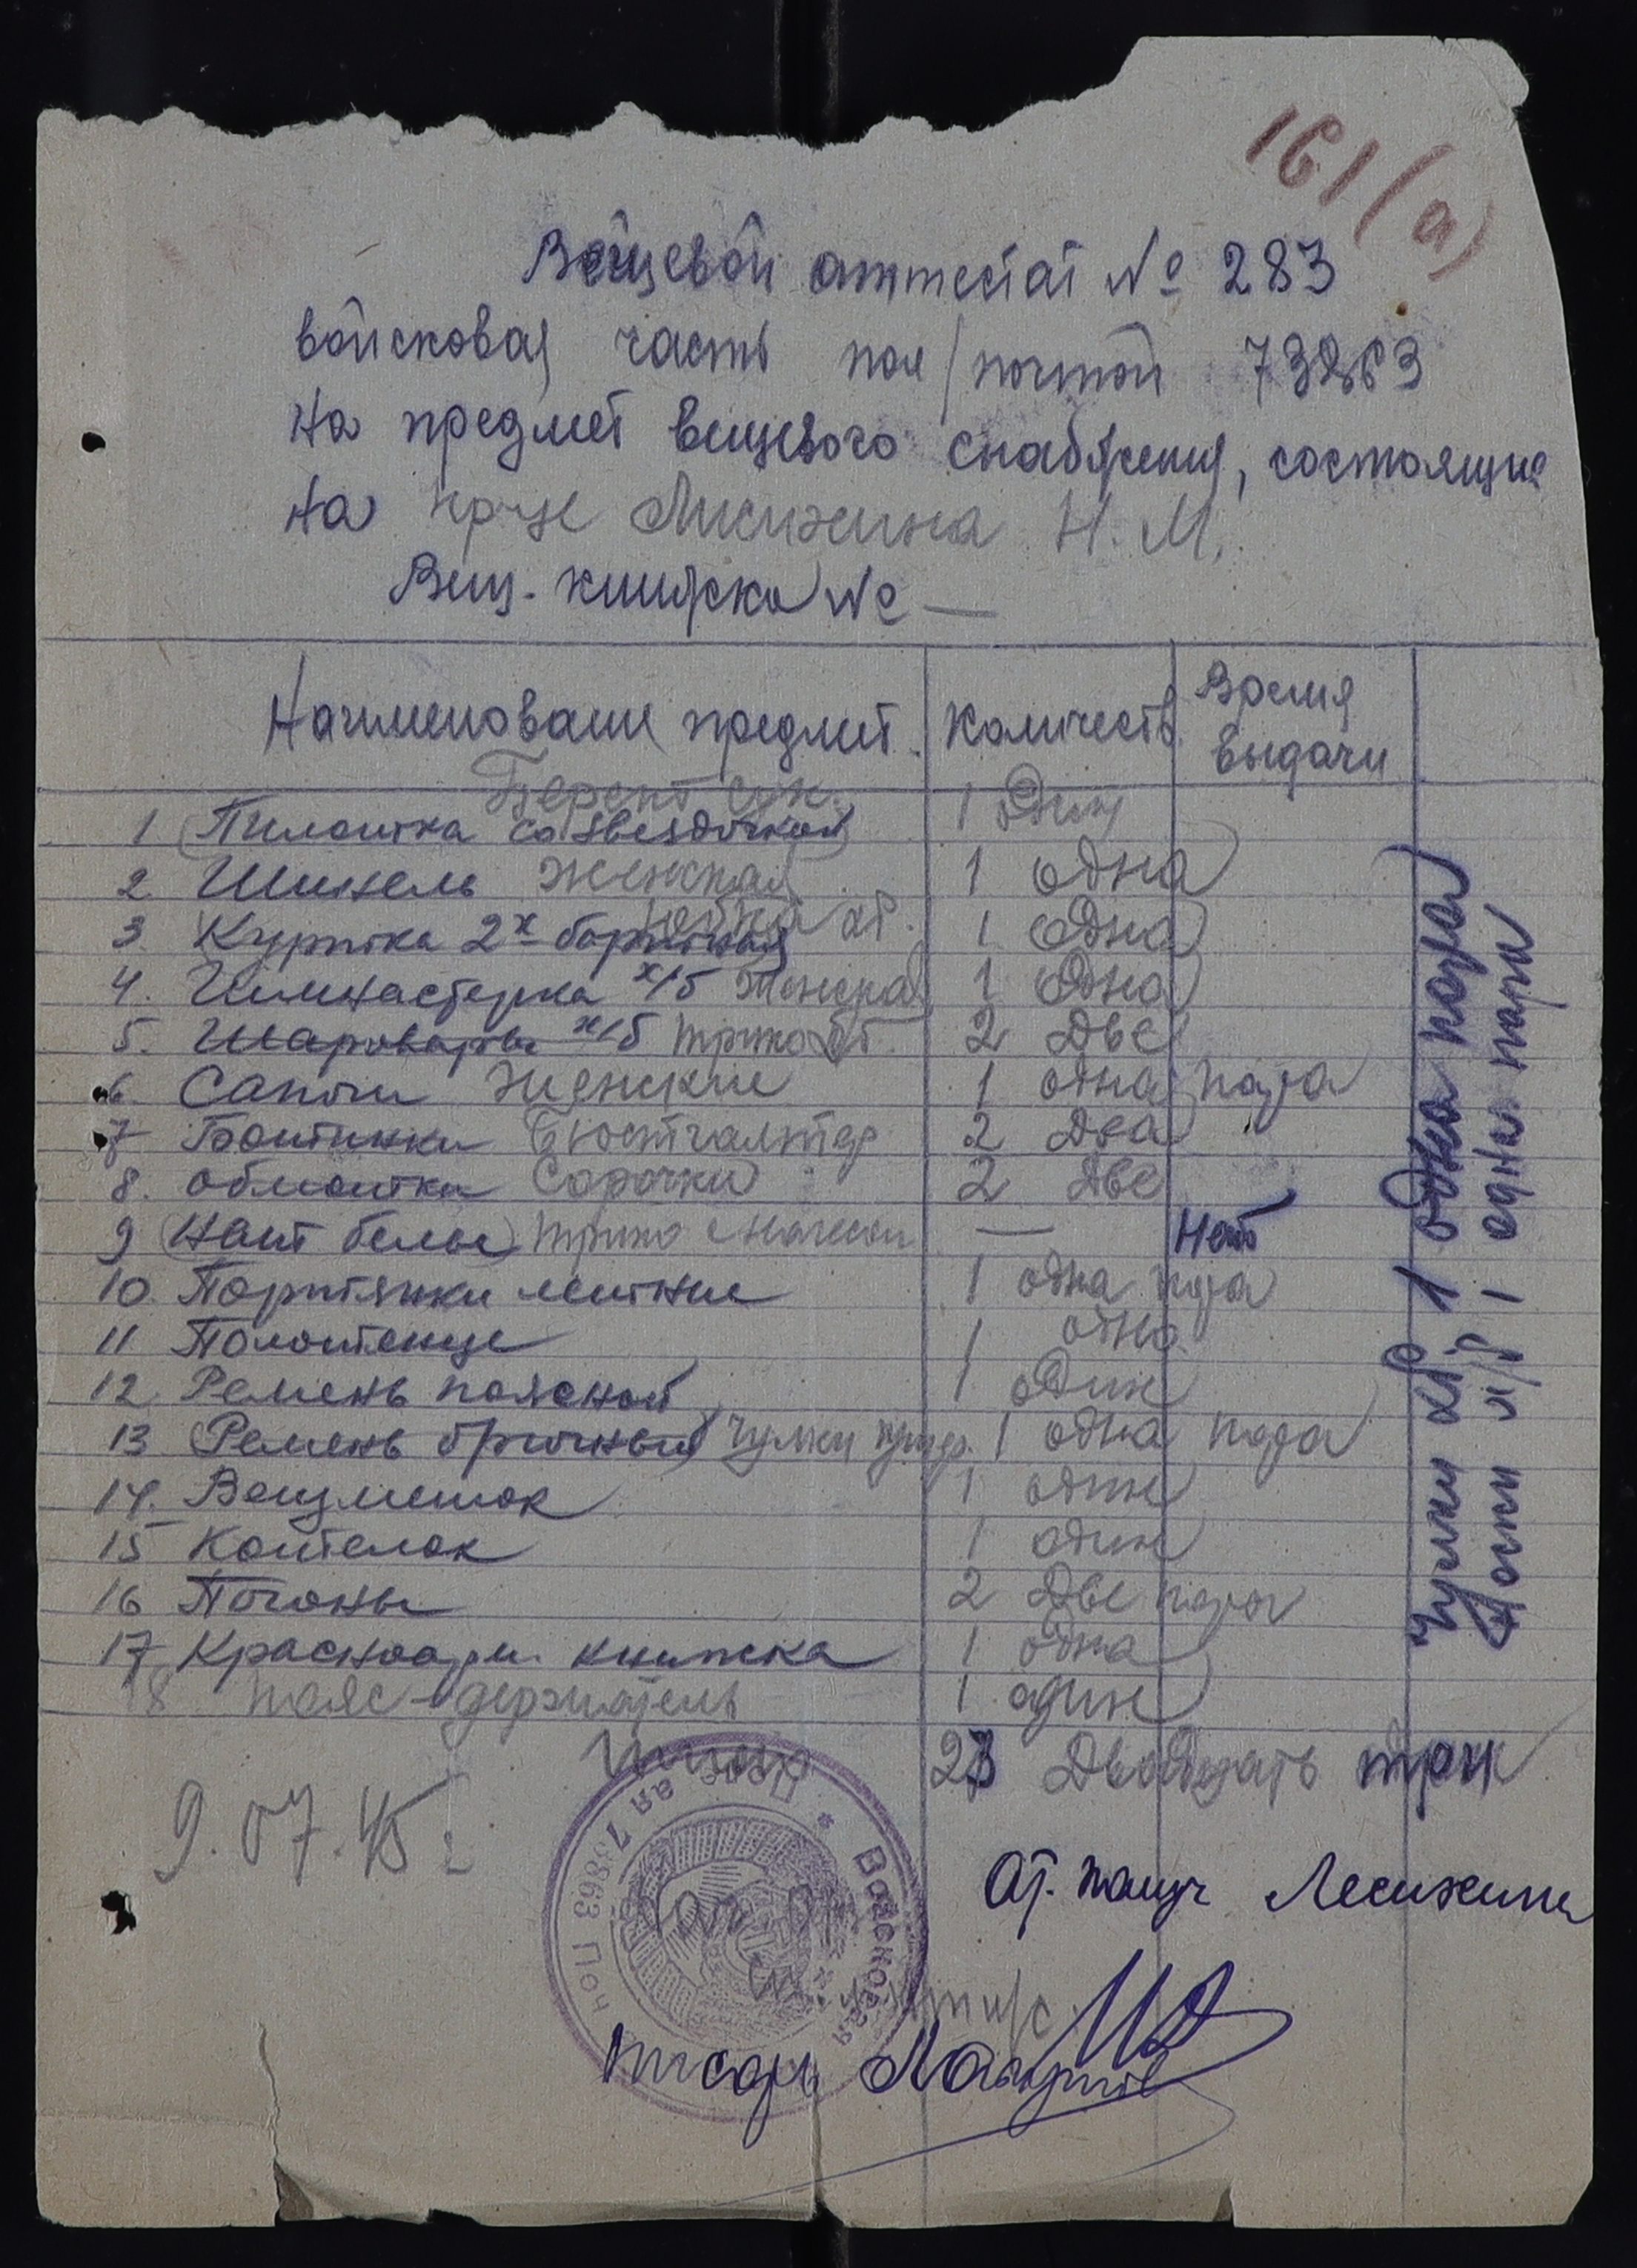 161 (а)
Вещевой аттестат № 283
войсковая часть пол/почтой 73863
На предмет вещевого снабжения, состоящие
на кр-це Лисихина Н. М.
Вещ. книжка № —
Наименование предмет. Количеств. Время выдачи
Берет сук.
1 (Пилотка со звездочкой) 1 Один
2 Шинель женская 1 одна
3. Куртка 2х бортная юбка хб. 1 Одна
4. Гимнастерка х/б женская 1 Одна
5. Шаровары х/б трико хб. 2 Две
6. Сапоги женские 1 одна пара
7 Ботинки Бюстгалтер 2 Два
8. Обмотки Сорочки 2 Две
9 (Нат белье) трико с начесом — Нет
10. Портянки летние 1 одна пара
11 Полотенце 1 одно
12. Ремень поясной 1 один
13 (Ремень брючный) Чулки 1 одна пара
14. Вещмешок 1 один
15 Котелок 1 один
16 Погоны 2 Две пары
17 Красноарм. книжка 1 одна
18 пояс-держатель 1 один
Чулки хб 1 одна пара
Носки х/б 1 одна пара
23 Двадцать три
9.07.45 г
Войсковая Полевая 73863 Поч
Лисихина
Писарь